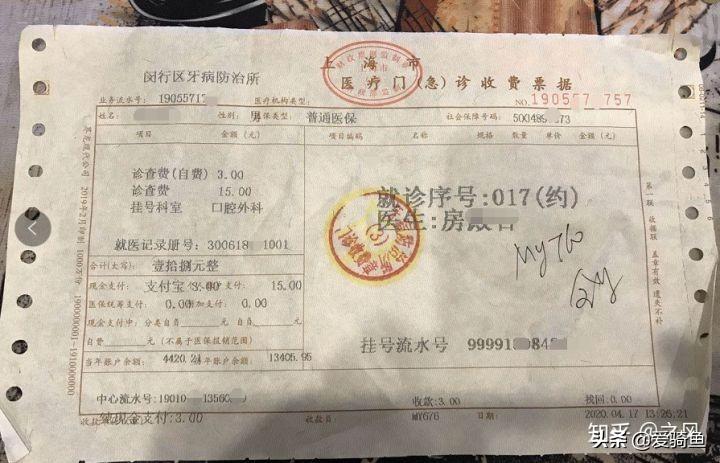 上海市
闵行区牙病防治所
医疗门(急)诊收费票据
业务流水号: 19055717 医疗机构类型: NO.190557 757
姓名: 性别: 男 医保类型: 普通医保 社会保障号码: 500489 73
项目 金额(元) 项目编码 名称 规格 数量 单价 金额(元)
诊查费(自费) 3.00
诊查费 15.00
挂号科室 口腔外科
就诊序号:017(约)
医生:房
就医记录册号: 300618 1001
MY760
合计(大写): 壹拾捌元整
现金支付: 支付宝 3.00 支付: 15.00
医保统筹支付: 0.00 附加支付: 0.00
现金支付中: 分类自负 元 自负 元
自费 元 (不属于医保报销范围)
挂号流水号 99991 84
当年账户余额: 4420.24 年账户余额: 13405.95
中心流水号: 19010 13560 收款: 3.00 找回: 0.00
现金支付: 3.00 收款员: MY676 日期: 2020.04.17 13:26:21
第一联 收据联 盖章有效 遗失不补
知乎 @之风
头条 @爱骑鱼